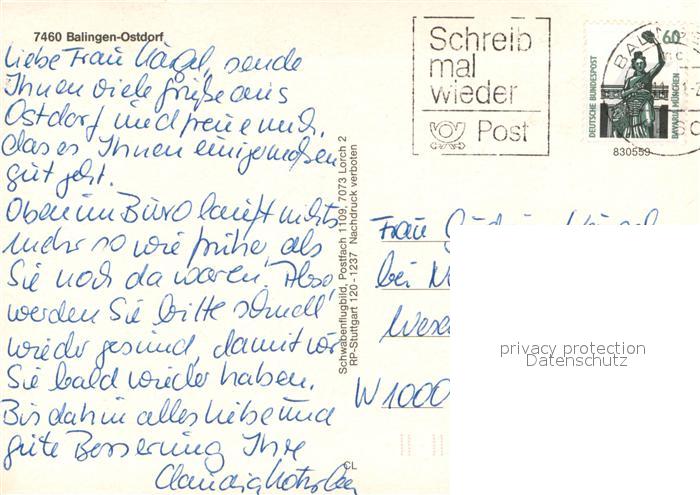 7460 Balingen-Ostdorf
Liebe Frau Nägel, sende
Ihnen viele Grüße aus
Ostdorf und freue mich,
das es Ihnen einigermaßen
gut geht.
Oben im Büro läuft nichts
mehr so wie früher, als
Sie noch da waren. Also,
werden Sie bitte schnell
wieder gesund, damit wir
Sie bald wieder haben.
Bis dahin alles Liebe und
gute Besserung Ihre
Claudia
CL
Schwabenflugbild, Postfach 1109, 7073 Lorch 2
RP-Stuttgart 120-1237 Nachdruck verboten
Schreib
mal
wieder
Post
60
DEUTSCHE BUNDESPOST
BAVARIA MÜNCHEN
830559
Frau
bei
W 1000
privacy protection
Datenschutz